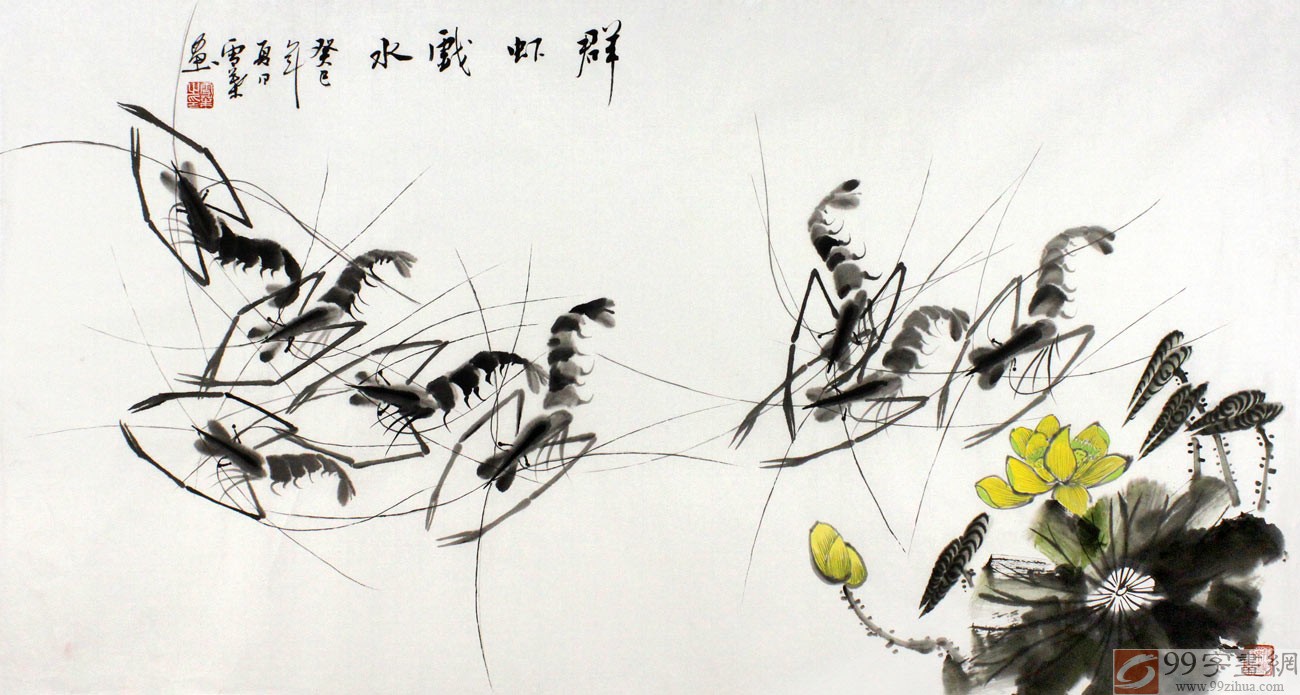 群虾戏水
癸巳
年
夏日
雪叶
画
99字畫網
www.99zihua.com